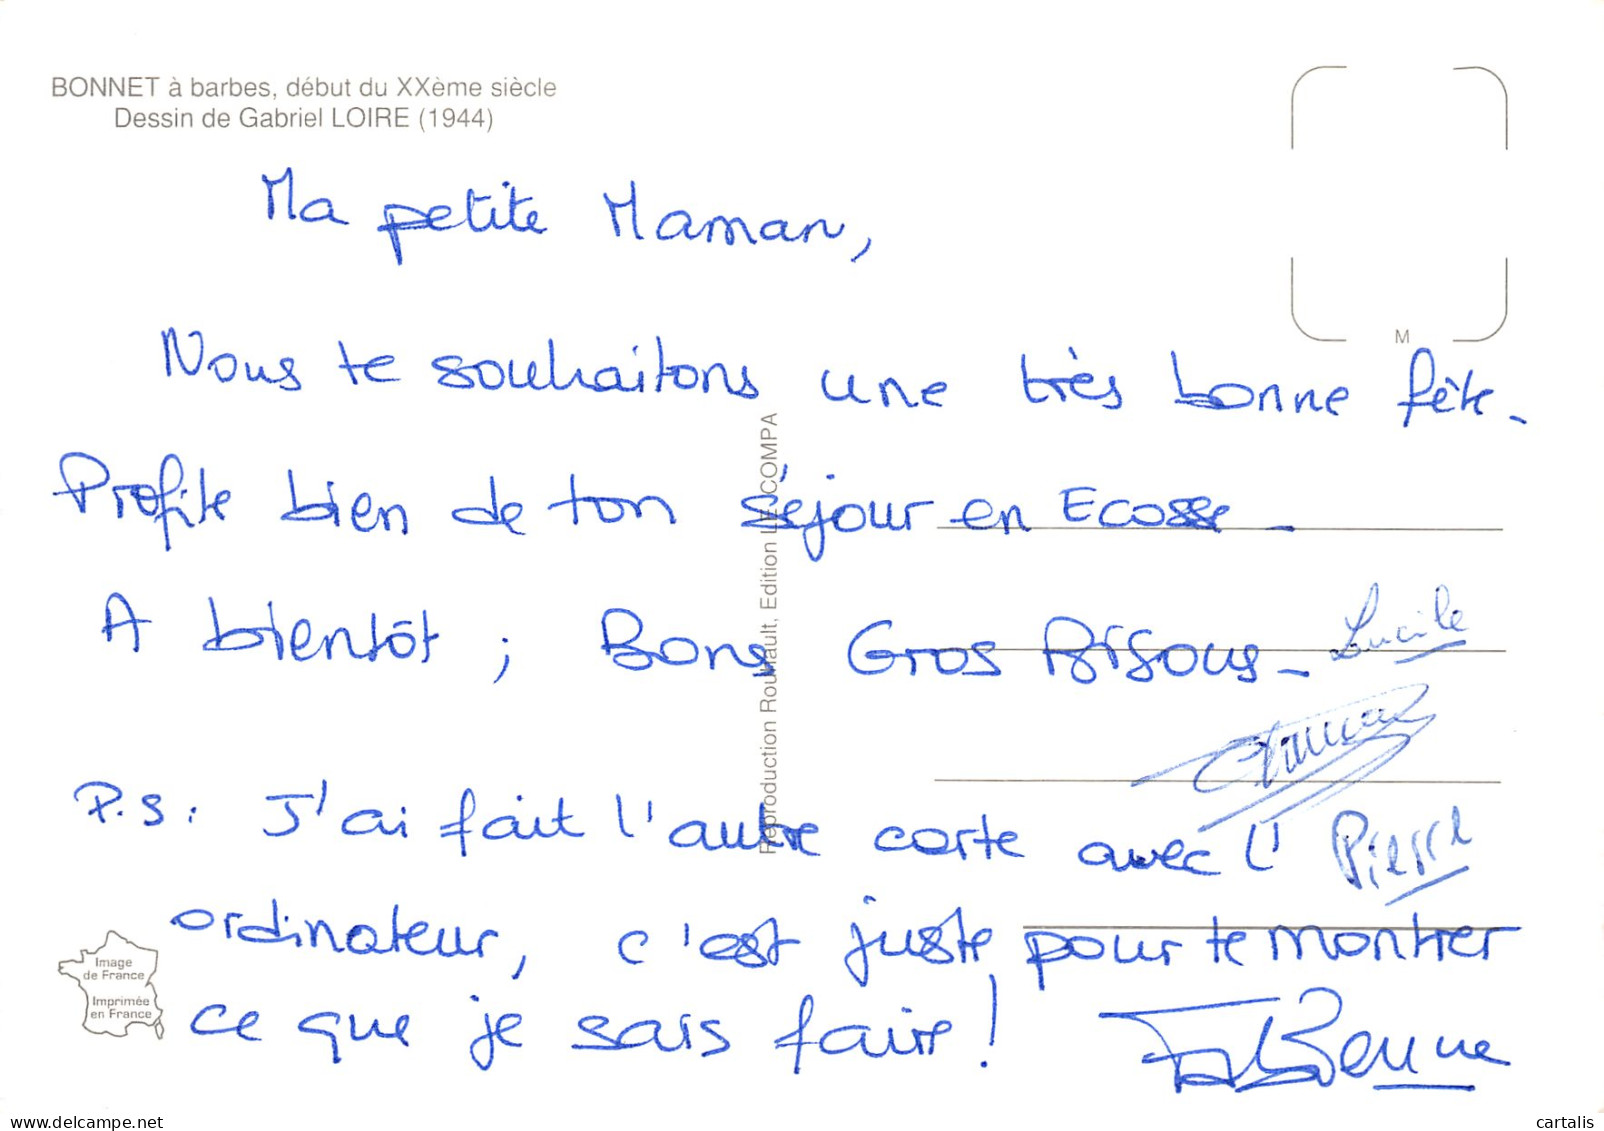 BONNET à barbes, début du XXème siècle
Dessin de Gabriel LOIRE (1944)
M
Ma petite Maman,
Nous te souhaitons une très bonne fête.
Profite bien de ton séjour en Ecosse.
A bientôt ; Bons Gros Bisous.
Lucile
P.S : J'ai fait l'autre carte avec l'
Pierre
ordinateur, c'est juste pour te montrer
ce que je sais faire !
Reproduction Rouhault, Edition LECOMPA
Image
de France
Imprimée
en France
delcampe.net
cartalis